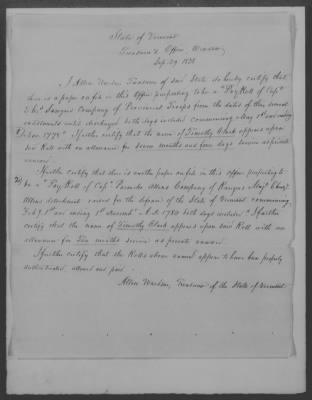 State of Vermont
Treasurer's Office Windsor
Sep. 29 1838
I Allen Wardner Treasurer of said State do hereby certify that
there is a paper on file in this Office purporting to be a "Pay Roll of Capt
Company of Provincial Troops from the dates of their several
enlistments until discharged both days included commencing May 1st and ending
1778" I further certify that the name of Timothy Clark appears upon
said Roll with an allowance for seven months and four days service as private
I further certify that there is another paper on file in this Office purporting to
be a "Pay Roll of Capt Parmalee Allens Company of Rangers Majr Ebenr
Allens detachment raised for the defence of the State of Vermont commencing
and ending A.D. 1780 both days included" I further
certify that the name of Timothy Clark appears upon said Roll with an
allowance for months service as private
I further certify that the Rolls above named appear to have been properly
authenticated allowed and paid
Allen Wardner, Treasurer of the State of Vermont